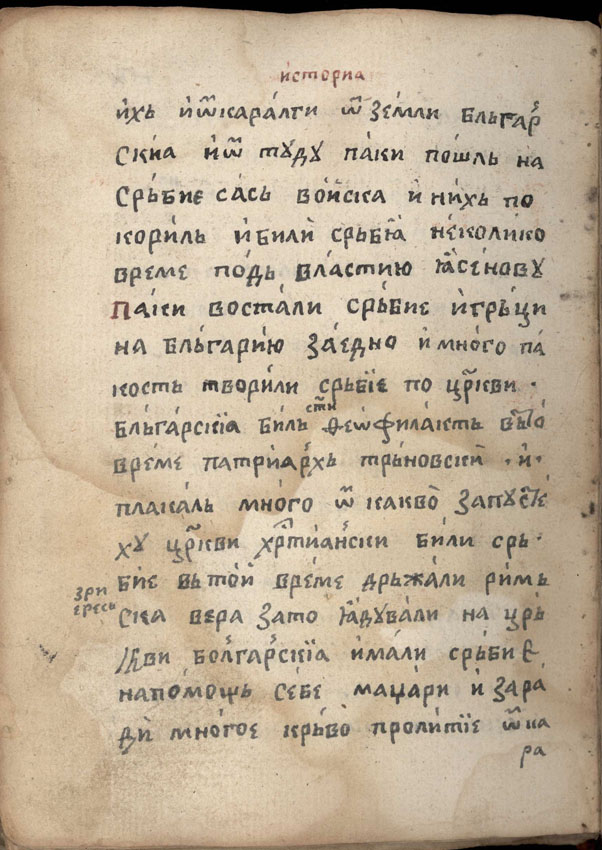 исторіа
ихь и ѿкаралги ѿ земли бльгар
скиа и ѿ туду паки пошль на
срьбие сась войска и нихь по
кориль и били срьбїѧ неколико
време подь властию ꙗсенову
Паки востали срьбие и грьци
на бльгарию заедно и много па
кость творили срьбїе по цр҃кви ·
бльгарскїа биль ст҃и ѳеѡфилакть вьто
време патриархь трьновский · и ·
плакаль много ѿ какво запусте
ху цр҃кви хр҃тиански били срь ·
бие вь той време дрьжали римь
зри ересь
ска вера зато ꙗдували на црь
кви болгарскїа имали срьбие
на помощь себе маџари и зара
ди многое крьво пролитїе ѿка
ра